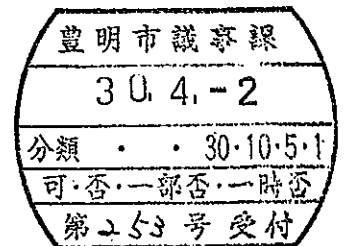 豊明市議事課
30.4.-2
分類 ・ ・ 30・10・5・1
可・否・一部否・一時否
第253号受付